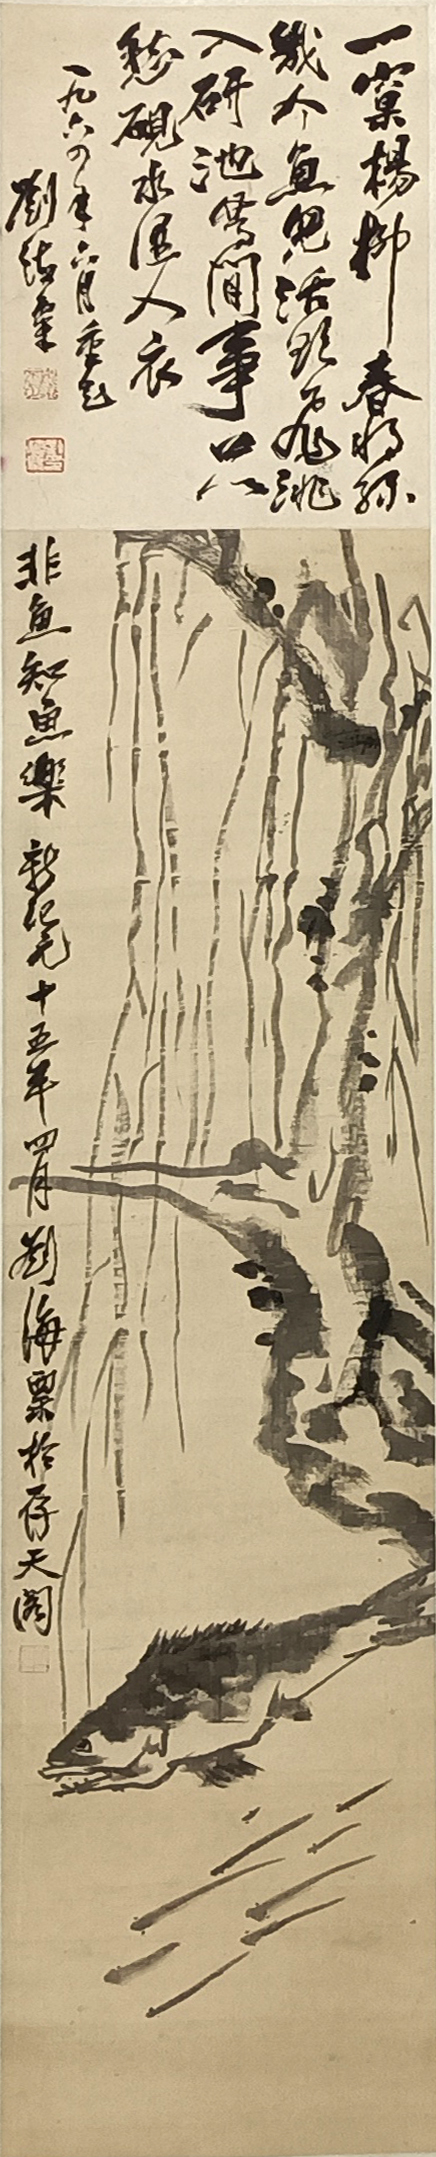 一窠楊柳春
幾个魚兒活欲飛跳
入研池等閒事只
愁硯水濕人衣
一九六四年六月重題
劉海粟
非魚知魚樂 新紀元十五年四月劉海粟於存天閣